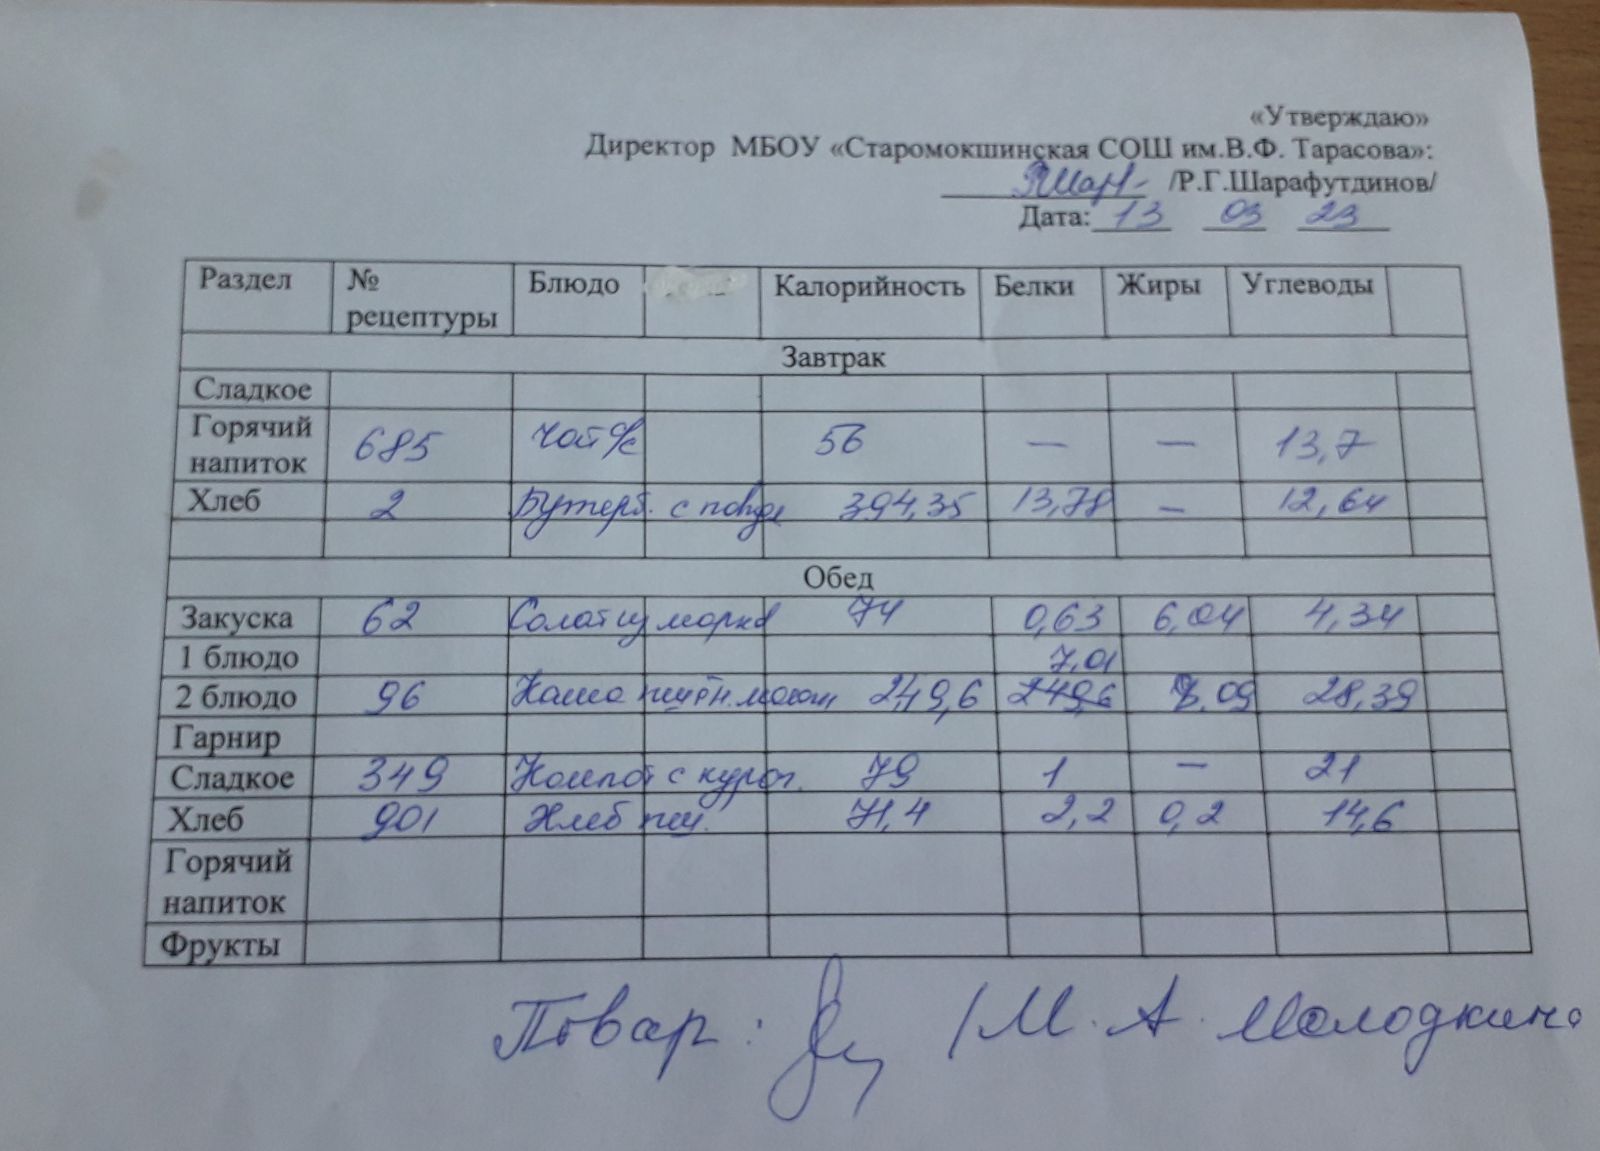 «Утверждаю»
Директор МБОУ «Старомокшинская СОШ им.В.Ф. Тарасова»:
/Р.Г.Шарафутдинов/
Дата: 13 03 23
Раздел № рецептуры Блюдо Калорийность Белки Жиры Углеводы
Завтрак
Сладкое
Горячий напиток 685 Чай б/с 56 — — 13,7
Хлеб 2 Бутерб. с повидл 394,35 13,78 — 12,64
Обед
Закуска 62 Салат из морков 74 0,63 6,04 4,34
1 блюдо 7,01
2 блюдо 96 Каша пшён. молоч, 249,6 249,6 8,09 28,39
Гарнир
Сладкое 349 Компот с кураг. 79 1 — 21
Хлеб 901 Хлеб пш. 71,4 2,2 0,2 14,6
Горячий напиток
Фрукты
Повар: /М.А. Молодкина